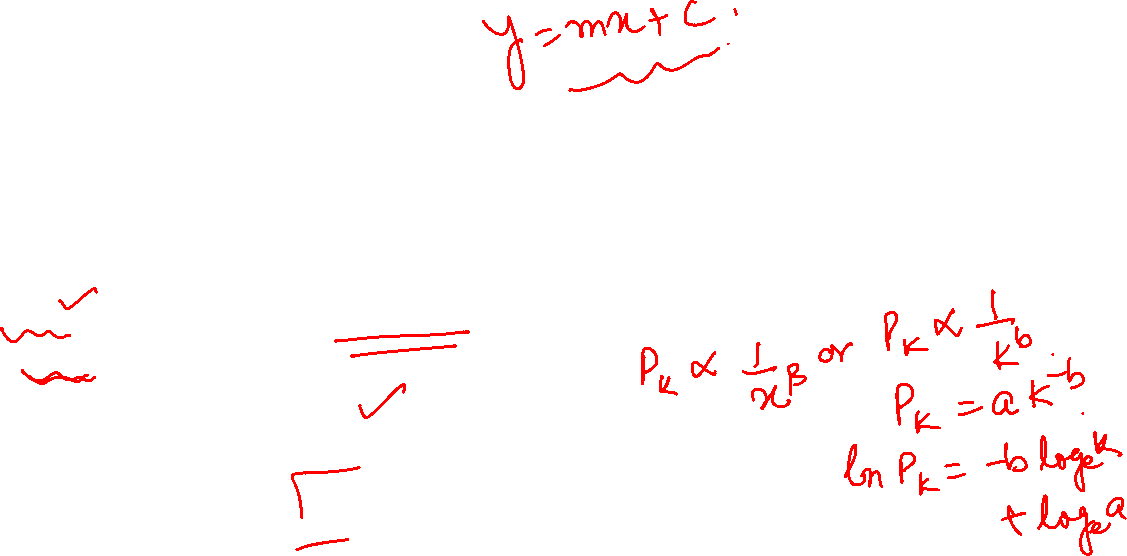 y = mx + c.
P_k ∝ 1/x^β or P_k ∝ 1/k^b.
P_k = a k^-b.
ln P_k = -b log_e k
+ log_e a